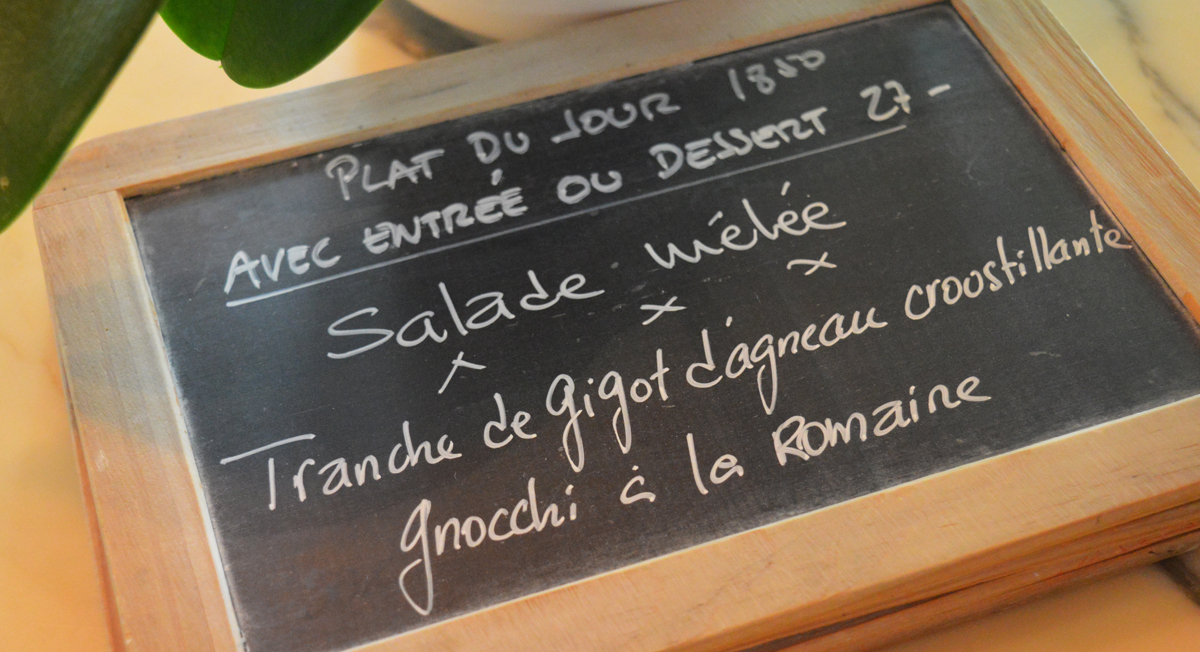 PLAT DU JOUR 1850
AVEC ENTRÉE OU DESSERT 27-
Salade mêlée
x x x
Tranche de gigot d'agneau croustillante
gnocchi à la Romaine